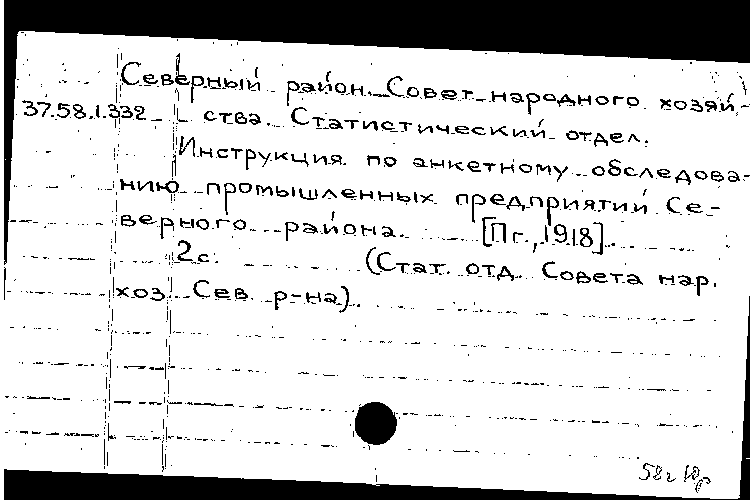 Северный район. Совет народного хозяй-
37.58.1.332 ства. Статистический отдел.
Инструкция по анкетному обследова-
нию промышленных предприятий Се-
верного района. [Пг., 1918].
2с. (Стат. отд. Совета нар.
хоз. Сев. р-на).